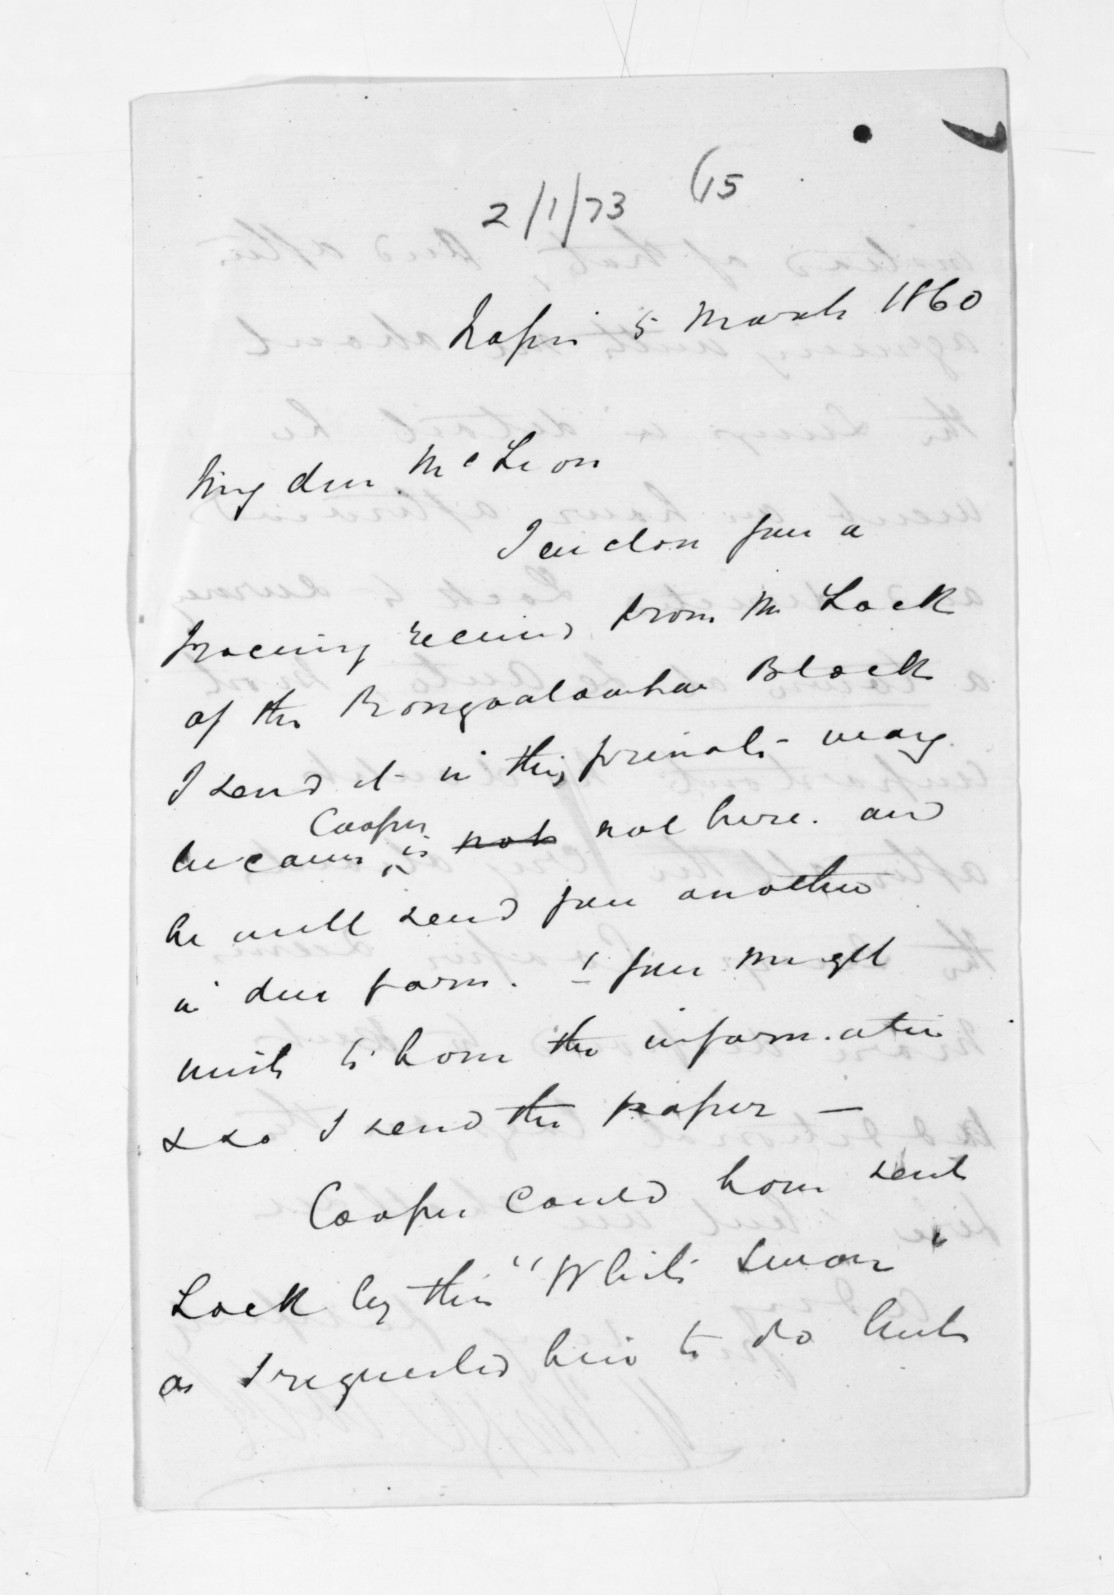 2/1/73 (15
Napier 5 March 1860
My dear McLean
I enclose you a
tracing received from Mr Lock
of the Block
I send it in this private way
because Cooper is not not here. and
he will send you another
in due form. You might
wish to have the information
& so I send the paper —
Cooper could have sent
Lock by the "White Swan"
as I requested him to do but